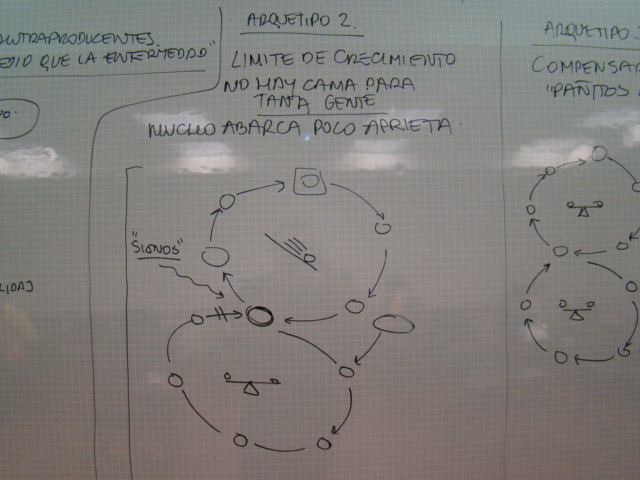 CONTRAPRODUCENTES.
QUE LA ENFERMEDAD"
ARQUETIPO 2.
LIMITE DE CRECIMIENTO
NO HAY CAMA PARA
TANTA GENTE
MUCHO ABARCA POCO APRIETA.
"SIGNOS"
ARQUETIPO
"PAÑITOS